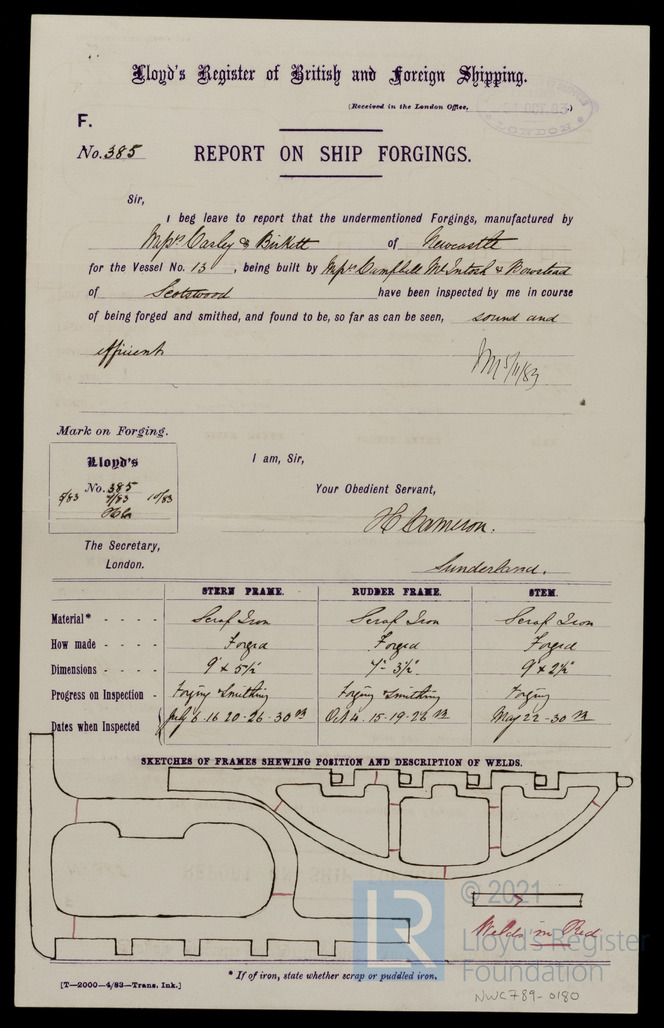 Lloyd's Register of British and Foreign Shipping.
(Received in the London Office, OCT.83 )
LONDON
F.
No. 385
REPORT ON SHIP FORGINGS.
Sir,
I beg leave to report that the undermentioned Forgings, manufactured by
Messrs Carley & Birkett of Newcastle
for the Vessel No. 13, being built by Messrs Campbell McIntosh & Bowstead
of Scotswood have been inspected by me in course
of being forged and smithed, and found to be, so far as can be seen, sound and
efficient
5/11/83
Mark on Forging.
Lloyd's
No. 385
5/83 7/83 10/83
HC
I am, Sir,
Your Obedient Servant,
H Cameron.
Sunderland.
The Secretary,
London.
STERN FRAME. RUDDER FRAME. STEM.
Material* - - - - Scrap Iron Scrap Iron Scrap Iron
How made - - - - Forged Forged Forged
Dimensions - - - - 9" x 5½" 3½" 9" x 2½"
Progress on Inspection - Forging & Smithing Forging Smithing Forging
Dates when Inspected July 6. 16 20 - 26 - 30 Oct 4. 15 - 19 - 26 May 22 - 30
SKETCHES OF FRAMES SHEWING POSITION AND DESCRIPTION OF WELDS.
Welds in Red
© 2021
LR
Lloyd's Register
Foundation
* If of iron, state whether scrap or puddled iron.
[T—2000—4/83—Trans. Ink.]
NWC789-0180